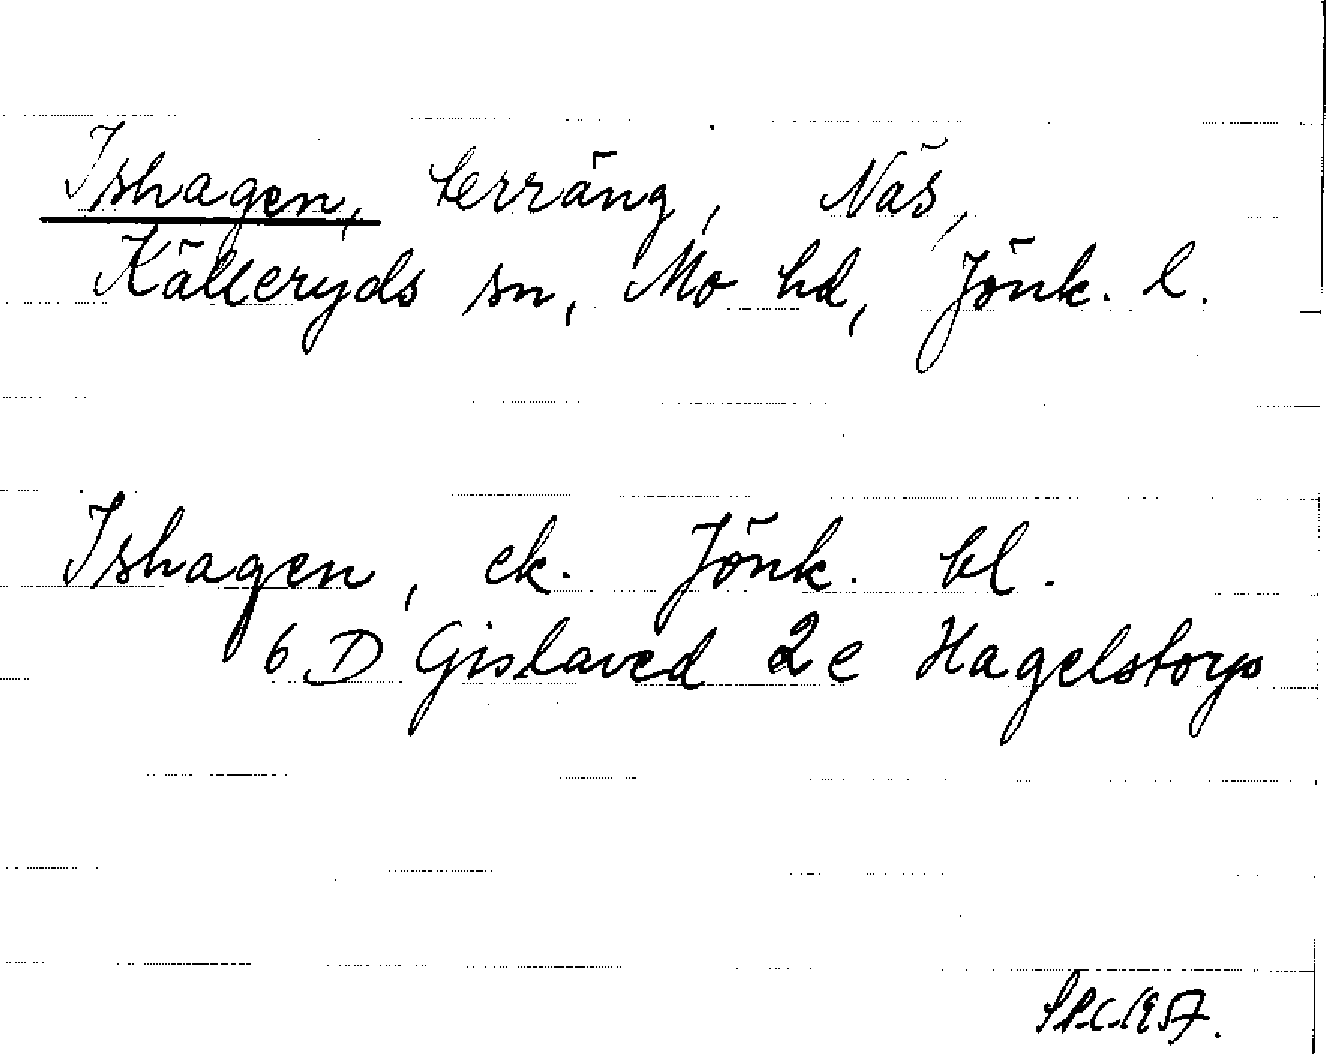 Ishagen, terräng, Näs,
Källeryds sn, Mo hd, Jönk. l.
Ishagen, ek. Jönk. bl.
6 D Gislaved 2 e Hagelstorp
1957.